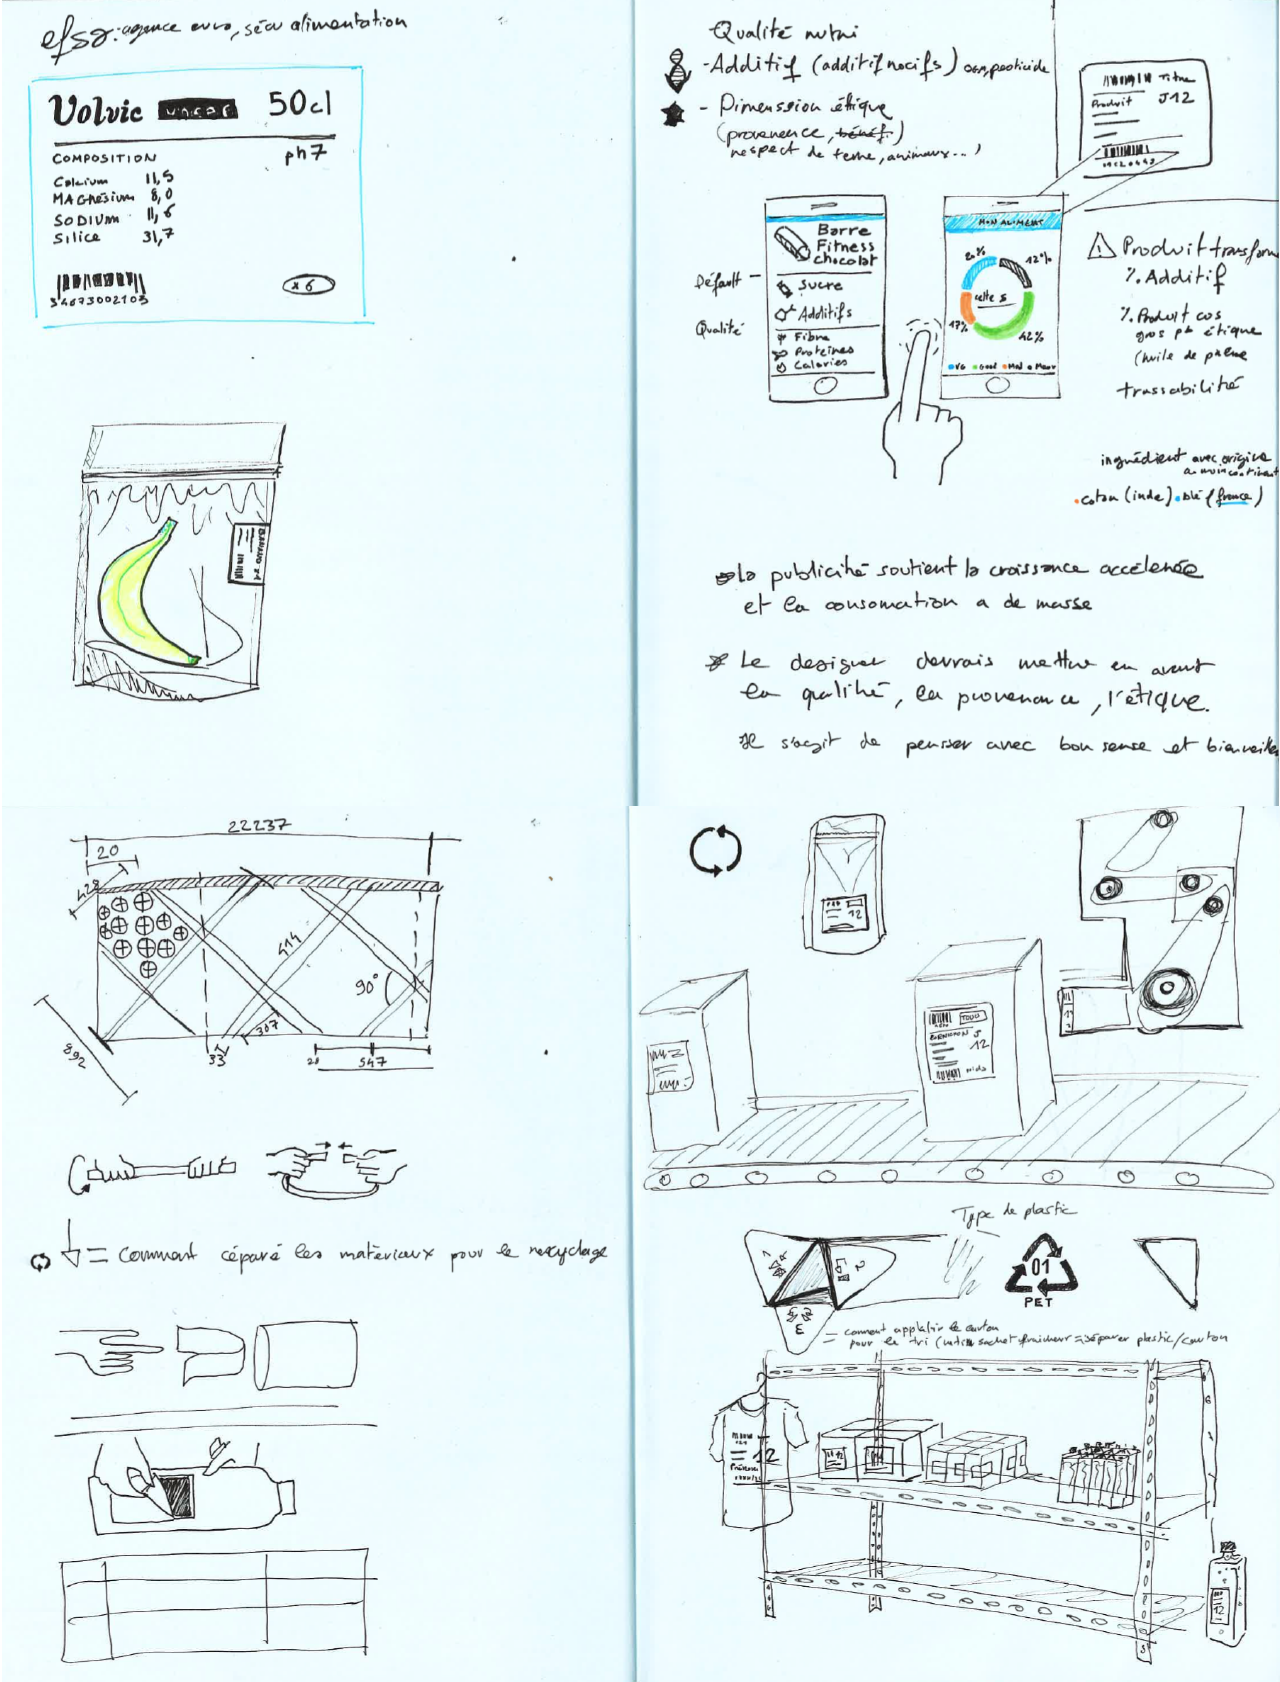 efsa: agence euro, sécu alimentation
Volvic 50cl
COMPOSITION ph7
Calcium 11,5
MAGnésium 8,0
SODIUM 11,6
Silice 31,7
34673002103
x6
Qualité nutri
- Additif (additif nocifs) pesticide
- Dimenssion étique
(provenence, bénéf.)
respect de terre, animaux...)
Titre
Produit J12
Barre
Fitness
chocolat
Défault -
Sucre
Additifs
Qualité
Fibre
Proteines
Calories
MON ALIMENT
20% 12%
17% 42%
VG Good Mal Mauv
Produit transform
% Additif
% Produit cos
gros pb étique
(huile de palme
trassabilité
ingrédient avec origine
coton (inde) blé (france)
La publicité soutient la croissance accélérée
et la consomation a de masse
Le designer devrais mettre en avant
la qualité, la provenance, l'étique.
Il s'agit de pensser avec bon sense et bienveillen
22237
20
428
414
90°
307
892
33
20
547
= Comment céparé les matériaux pour le recyclage
12
12
Type de plastic
1
2
3
01
PET
= comment applatir le carton
pour le tri sachet fraicheur = séparer plastic/carton
12
12